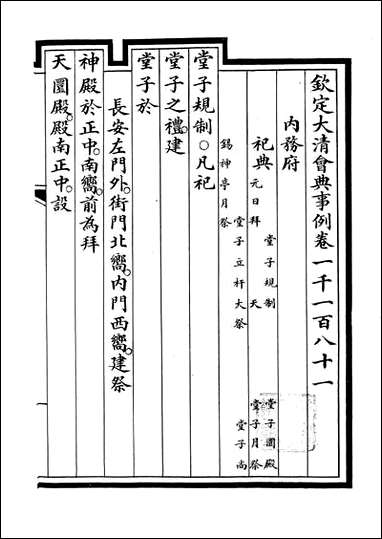 欽定大清會典事例卷一千一百八十一
內務府
祀典
堂子規制 堂子圜殿
元日拜 天 堂子月祭
堂子立杆大祭 堂子尚
錫神亭月祭
堂子規制○凡祀
堂子之禮。建
堂子於
長安左門外。街門北嚮。內門西嚮。建祭
神殿於正中。南嚮。前為拜
天圜殿。殿南正中。設